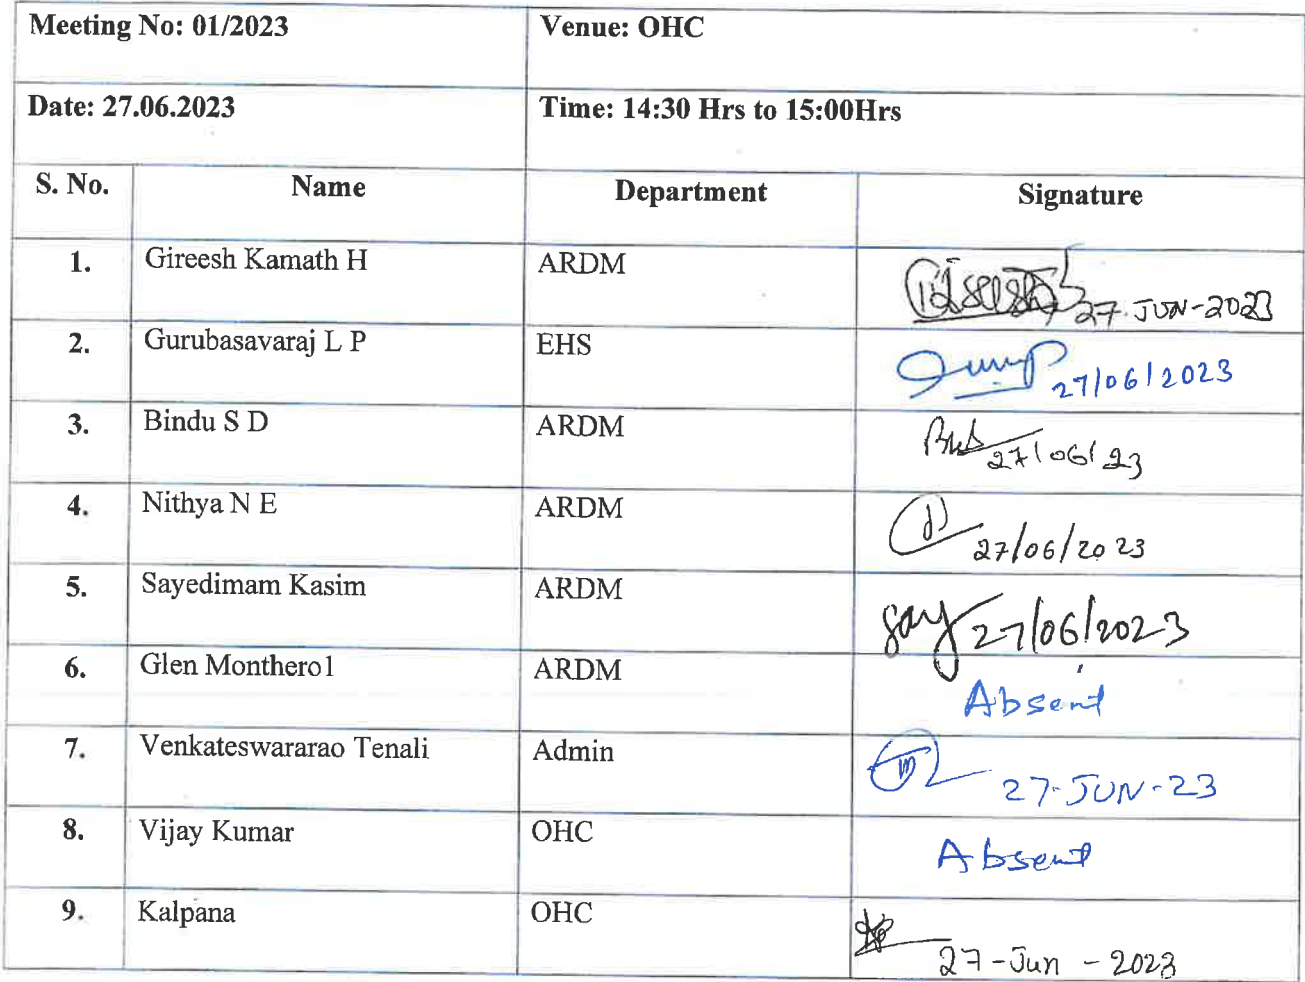 Meeting No: 01/2023 Venue: OHC
Date: 27.06.2023 Time: 14:30 Hrs to 15:00Hrs
S. No. Name Department Signature
1. Gireesh Kamath H ARDM 27-JUN-2023
2. Gurubasavaraj L P EHS 27/06/2023
3. Bindu S D ARDM 27/06/23
4. Nithya N E ARDM 27/06/2023
5. Sayedimam Kasim ARDM Say 27/06/2023
6. Glen Monthero1 ARDM Absent
7. Venkateswararao Tenali Admin 27-JUN-23
8. Vijay Kumar OHC Absent
9. Kalpana OHC 27-Jun-2023